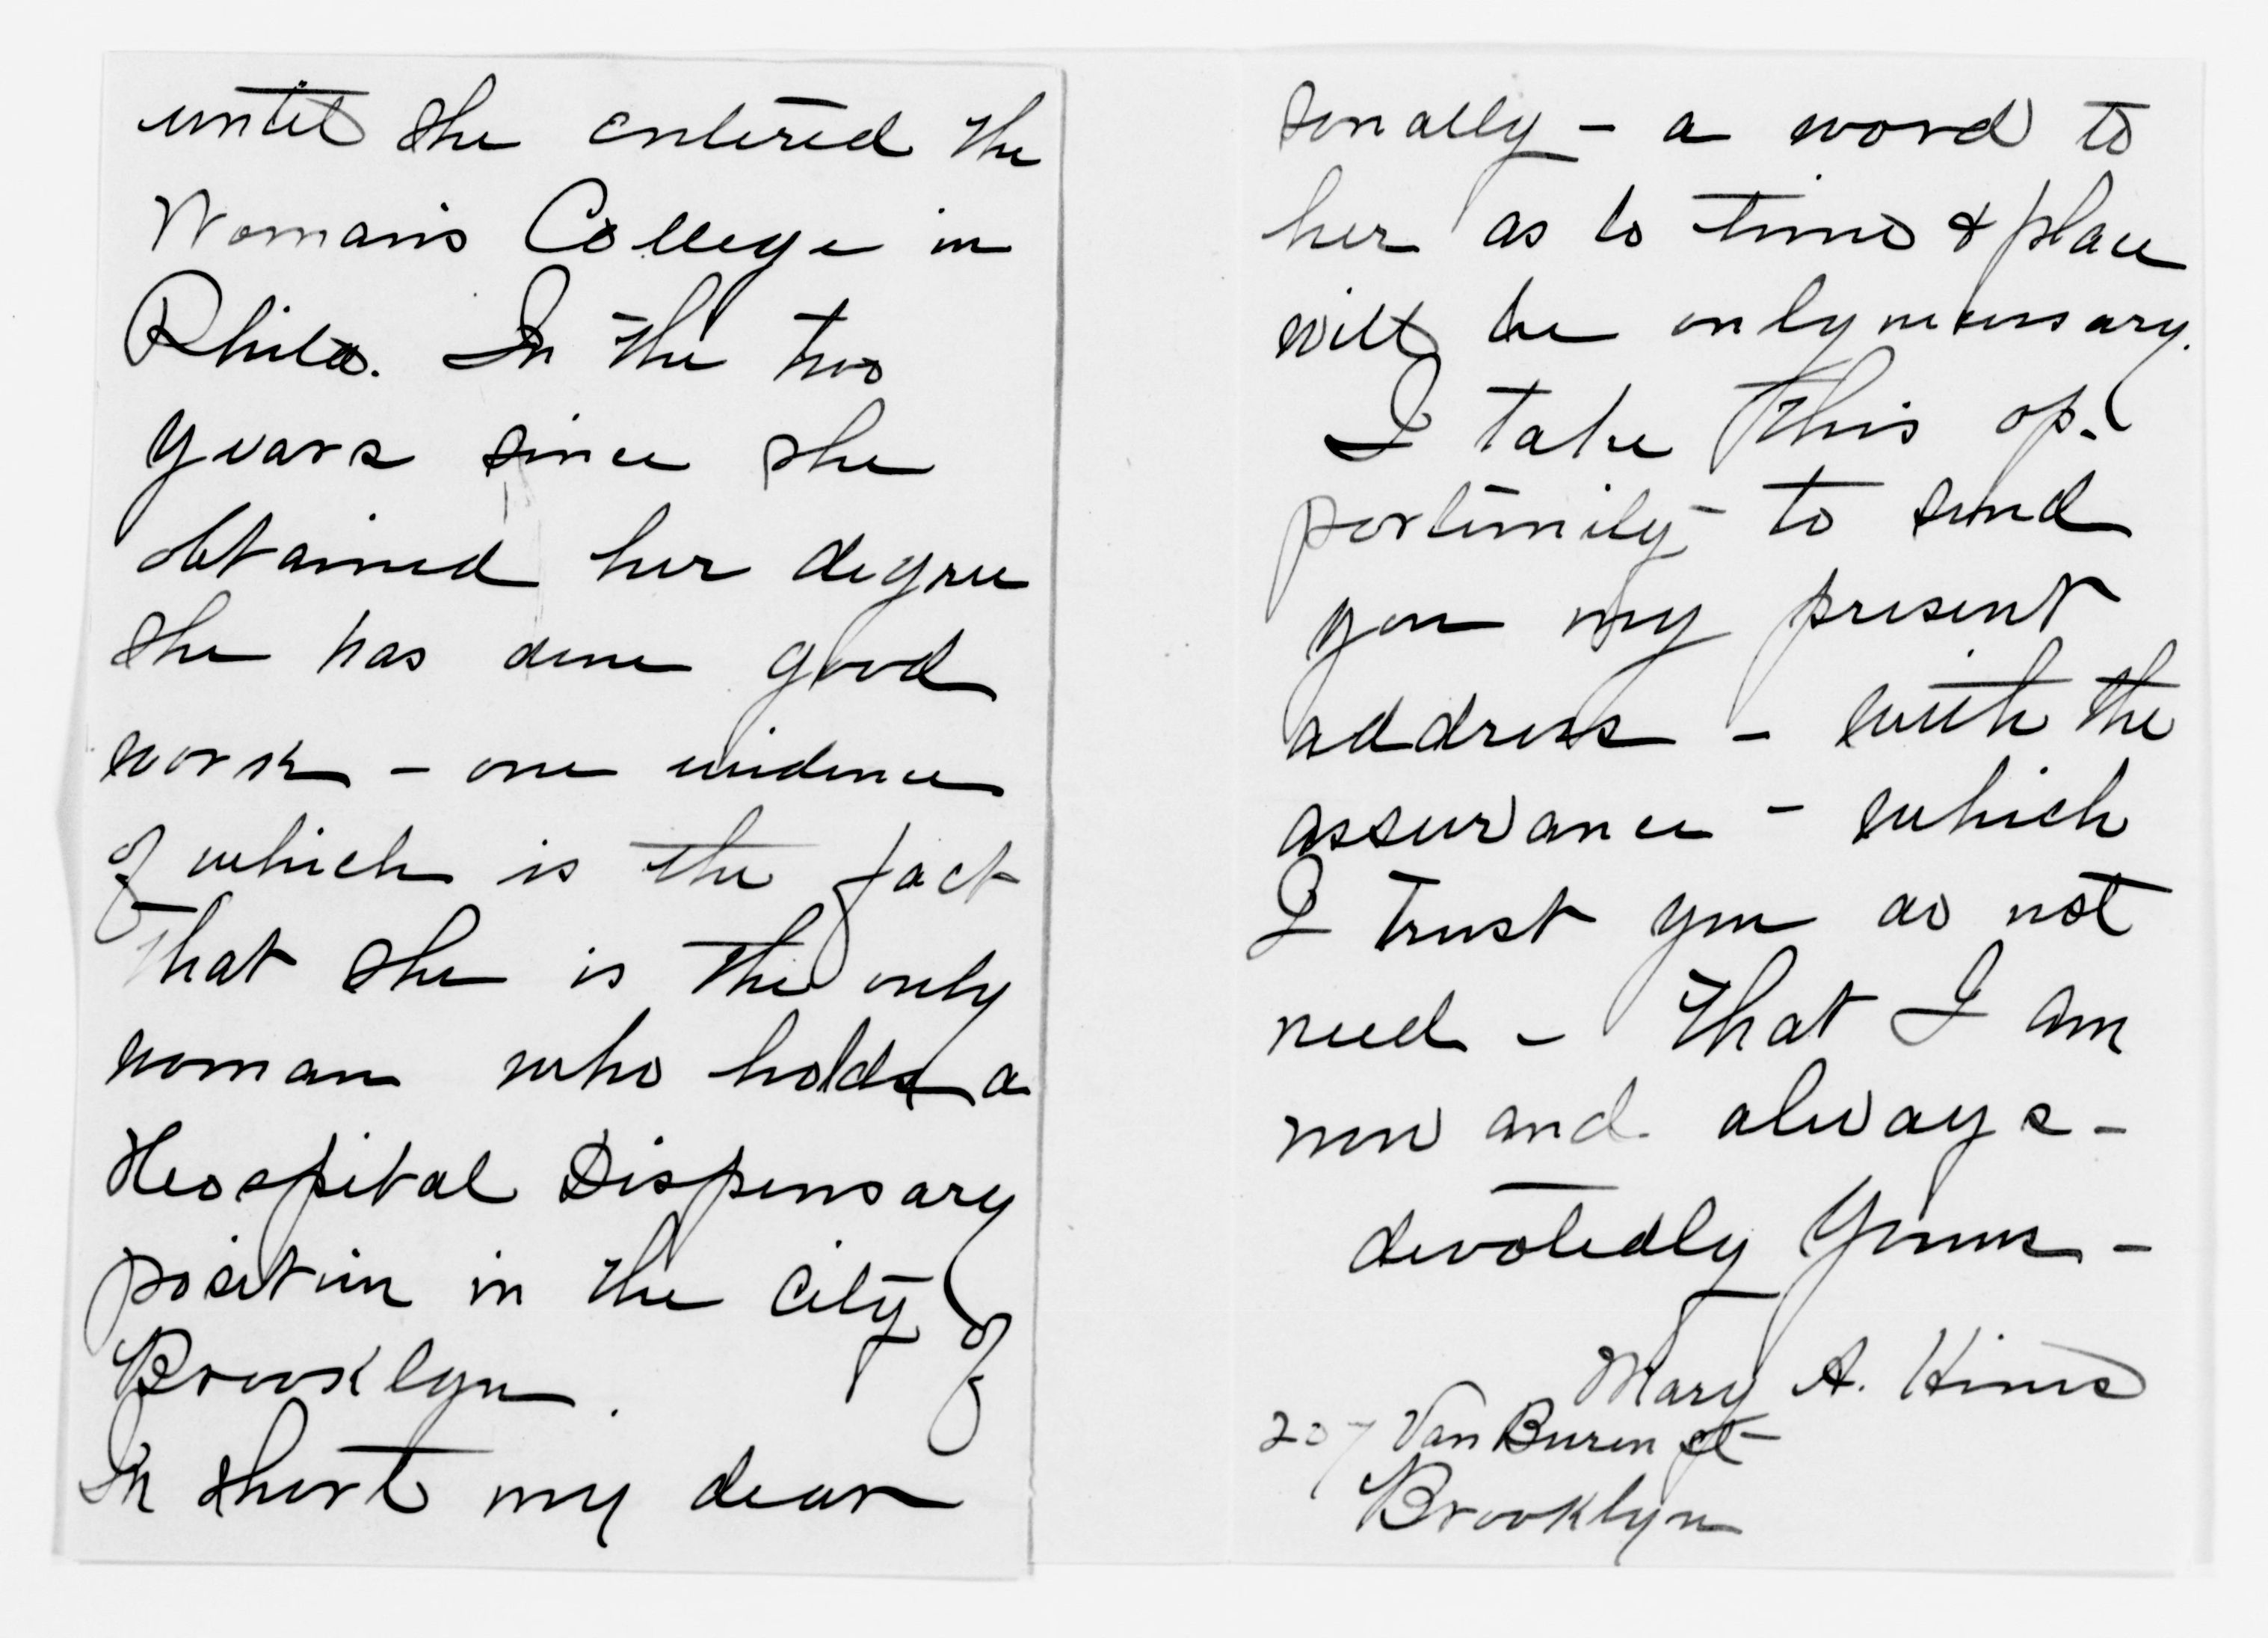 until she entered the
Woman's College in
Phila. In the two
years since she
obtained her degree
she has done good
work - one evidence
of which is the fact
that she is the only
woman who holds a
Hospital Dispensary
position in the city of
Brooklyn.
In short my dear
sonally - a word to
her as to time & place
will be only necessary.
I take this op-
portunity - to send
you my present
address - with the
assurance - which
I trust you do not
need - that I am
now and always -
devotedly yours -
Mary A. Hines
207 Van Buren St
Brooklyn